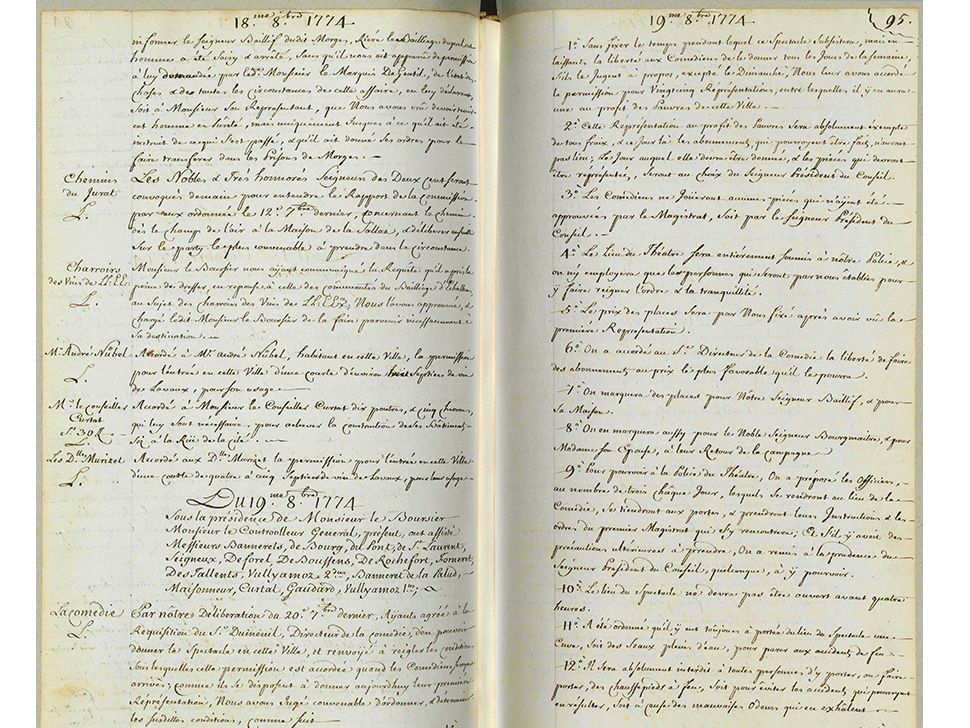 18.me 8.bre 1774
informer le Seigneur Baillif dudit Morges, Riere le Bailliage duquel cet
homme a été Saisy & arrêté, Sans qu'il nous ait apparû de permission
à luy demandée par led.t Monsieur le Marquis De Gentil, de l'état des
choses & des toutes les circonstances de cette affaire, en luy déclarant
Soit à Monsieur Son Représentant, que Nous avons crû devoir tenir
cet homme en Sureté, mais uniquement Jusques à ce qu'il ait été
instruit de ce qui S'est passé, & qu'il ait donné Ses ordres pour le
faire transferer dans les Prisons de Morges.
Chemins
du Jurat
L.
Les Nobles & Trés honnorés Seigneurs des Deux Cent seront
convoqués demain pour entendre le Rapport de la Commission
par eux ordonnée le 12.e 7.bre dernier, concernant le chemin
dès le champ de l'air à la Maison de la Sallaz, & délibérer ensuite
Sur le party le plus convenable à prendre dans la circonstance.
Charroirs
des Vins de LL.EE.
L.
Monsieur le Boursier nous ayant communiqué la Requête qu'il a pris la
peine de dresser, en reponse à celle des communautés du Bailliage d'Echallens
au Sujet des charrois des Vins de LL.EE.ces, Nous l'avons approuvée, &
chargé ledit Monsieur le Boursier de la faire parvenir incessamment à
Sa destination.
Mr. André Nübel
L.
Accordé à Mr. André Nübel, habitant en cette Ville, la permission
pour l'entrée en cette Ville d'une courte d'environ Septiers de vin
de Lavaux, pour son usage
Mr. le Conseiller
Curtat
L.
Accordé à Monsieur le Conseiller Curtat dix poutres, & cinq chevrons,
qui luy Sont nécessaires, pour achever la construction de Ses Bâtimens
Sis à la Rüe de la cité.
Les D.lles Murizet
L.
Accordé aux D.lles Murizet la permission pour l'entrée en cette Ville
d'une courte de quatre à cinq Septiers de vin de Lavaux, pour leur usage
Du 19.me 8.bre 1774
Sous la présidence de Monsieur le Boursier
Monsieur le Controolleur General, présent, ont assisté
Messieurs Bannerets, de Bourg, du Pont, de S.t Laurent,
Seigneux, Deforel, De Boussens, De Rochefort, Forneret
Des Fallents, Vullyamoz 2.dus, Banneret de la Palud,
Maisonneur, Curtat, Gaudard, Vullyamoz 1.us; &
La comedie
L.
Par nôtre Déliberation du 20.e 7.bre dernier, Ayants agréé à la
Requisition du S.r Dumeinil, Directeur de la comedie, d'en pouvoir
donner le Spectacle en cette Ville, et renvoyé à reigler les conditions
Sous lesquelles cette permission est accordée quand les Comediens seroyent
arrivés; comme ils Se disposent à donner aujourdhuy leur premiere
Réprésentation, Nous avons Jugé convenable d'ordonner, & determiner
les susdittes conditions, comme suit
19.me 8.bre 1774
95.
1.o Sans fixer le temps pendant lequel ce Spectacle Subsistera, mais en
laissant, la liberté aux Comediens de le donner tous les Jours de la Semaine,
S'ils le Jugent à propos, excepté le Dimanche, Nous leur avons accordé
la permission pour Vingt cinq Représentations, entre lesquelles il y en aura
une au profit des Pauvres de cette Ville
2.o Cette Représentation au profit des Pauvres Sera absolument exempte
de tous fraix, & ce Jour là les abonnements, qui pourroyent être fait, n'auront
pas lieu; Le Jour auquel elle devra être donnée, & les pièces qui devront
être représentées, Seront au choix du Seigneur Président du Conseil.
3.o Les Comédiens ne Joüeront aucunes pièces qui n'ayent été
approuvées par le Magistrat, Soit par le Seigneur Président du
Conseil
4.o Le Lieu du Théatre Sera entièrement soumis à notre Police, &
on n'y employera que les personnes qui Seront par nous établies pour
y faire reigner l'ordre & la tranquillité.
5.o Le prix des places Sera par Nous fixé après avoir vû la
première Représentation.
6.o On a accordé au S.r Directeur de la Comedie la liberté de faire
des abonnements au prix le plus favorable qu'il le pourra.
7.o On marquera des places pour Nôtre Seigneur Baillif, & pour
Sa Maison.
8.o On en marquera aussy pour le Noble Seigneur Bourguemaitre, & pour
Madame Son Epouse, à leur Retour de la Campagne
9.o Pour pourvoir à la Police du Théatre, On a préposé les Officiers,
au nombre de trois chaque Jour, lesquels Se rendront au lieu de la
Comédie, Se tiendront aux portes, & prendront leurs Instructions & les
ordres du premier Magistrat qui S'y rencontrera; Et S'il y avoit des
précautions ultérieures à prendre, On a remis à la prudence du
Seigneur Président du Conseil, quelconque, à y pourvoir.
10.o Le lieu du Spectacle ne devra pas être ouvert avant quatre
heures.
11.o A été ordonné qu'il y eut toujours à portée du lieu du Spectacle une
Cuve, Soit des Seaux pleins d'eau, pour parer aux accidents du feu
12.o Il Sera absolument interdit à toutes personnes d'y porter, ou faire
porter, des chauffepieds à feu, Soit pour éviter les accidents qui pourroyent
en résulter, Soit à cause des mauvaises Odeurs qui en exhalent